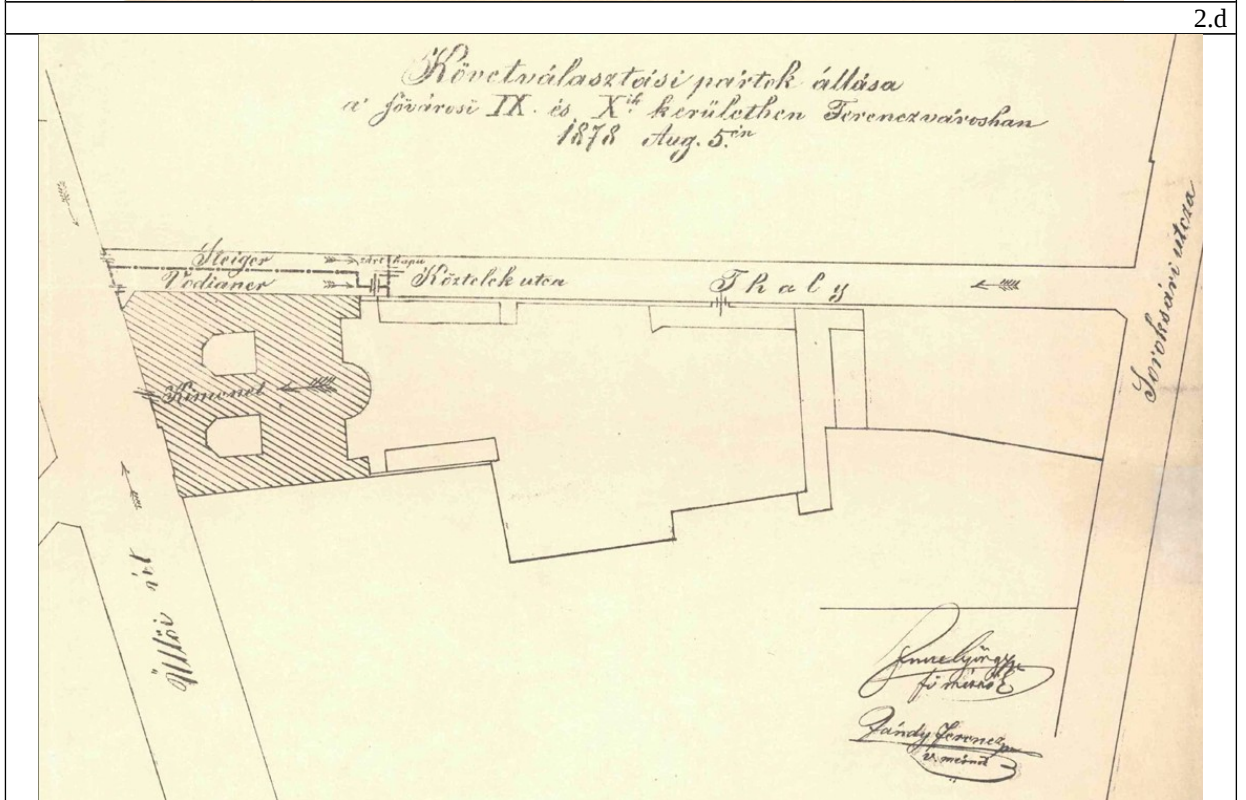 2.d
Követválasztási pártok állása
a' fővárosi IX. és X.ik kerületben Ferenczvárosban
1878 Aug. 5.én
Steiger
zárt kapu
Vodianer
Köztelek utca
Thaly
Kimenet
Soroksári utcza
Üllői út
főmérnök
Pándy Ferencz
v. mérnök